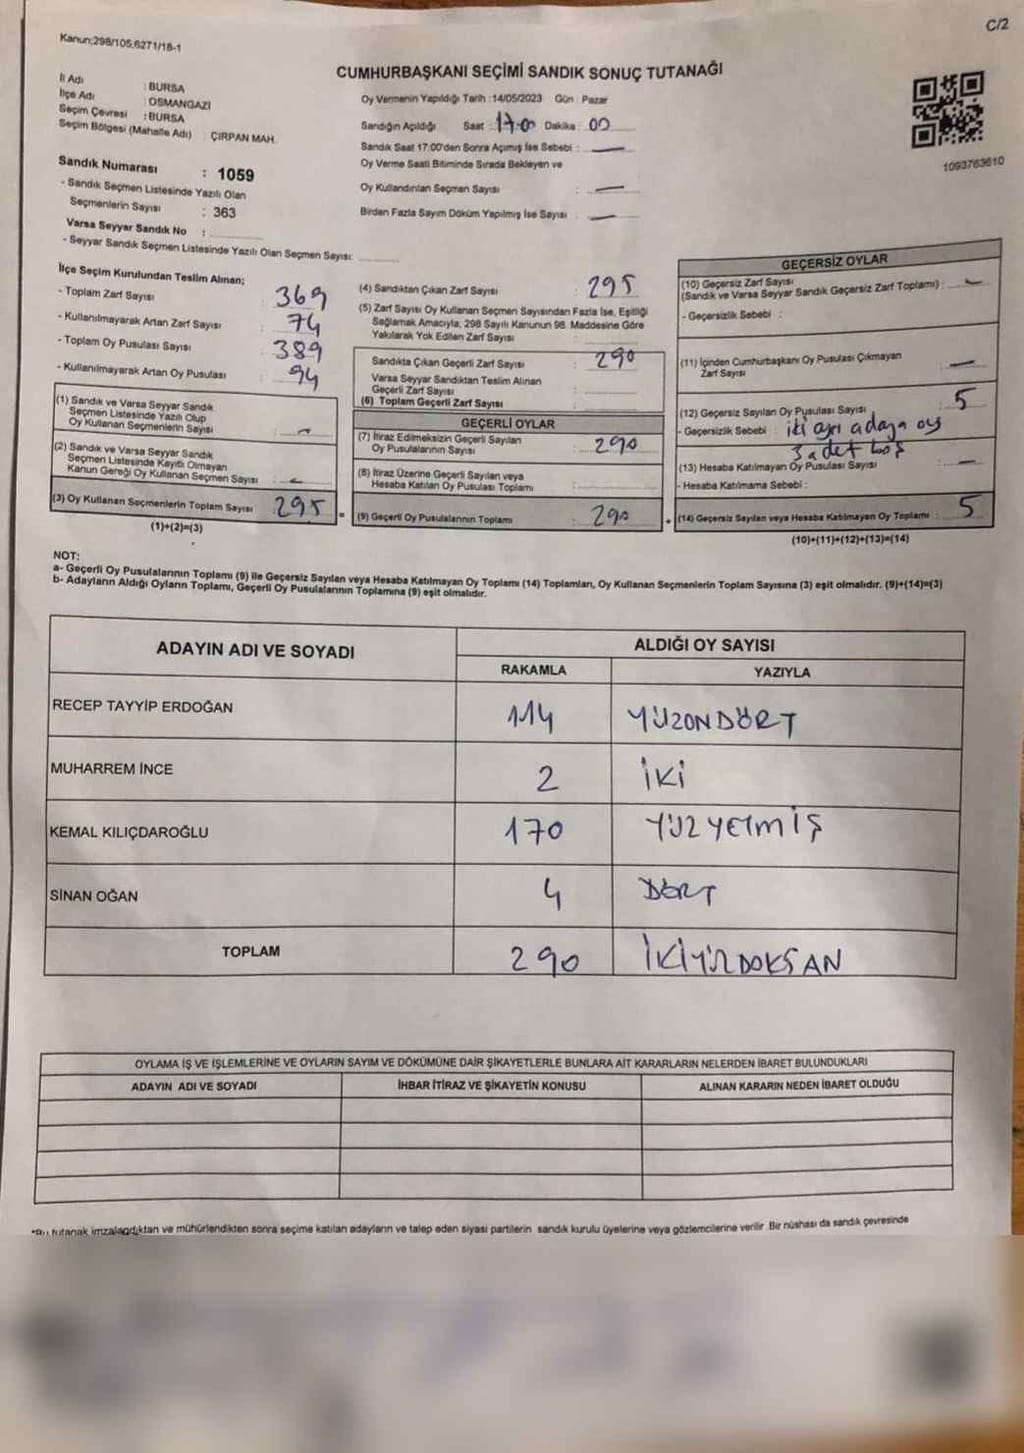 C/2
Kanun:298/105,6271/18-1
CUMHURBAŞKANI SEÇİMİ SANDIK SONUÇ TUTANAĞI
İl Adı : BURSA
İlçe Adı : OSMANGAZİ
Seçim Çevresi : BURSA
Seçim Bölgesi (Mahalle Adı) : ÇIRPAN MAH.
Sandık Numarası : 1059
- Sandık Seçmen Listesinde Yazılı Olan
Seçmenlerin Sayısı : 363
Varsa Seyyar Sandık No :
- Seyyar Sandık Seçmen Listesinde Yazılı Olan Seçmen Sayısı:
Oy Vermenin Yapıldığı Tarih :14/05/2023 Gün : Pazar
Sandığın Açıldığı Saat : 17:00 Dakika : 00
Sandık Saat 17:00'den Sonra Açımış İse Sebebi : —
Oy Verme Saati Bitiminde Sırada Bekleyen ve
Oy Kullandırılan Seçmen Sayısı : —
Birden Fazla Sayım Döküm Yapılmış İse Sayısı : —
1093763610
İlçe Seçim Kurulundan Teslim Alınan;
- Toplam Zarf Sayısı : 369
- Kullanılmayarak Artan Zarf Sayısı : 74
- Toplam Oy Pusulası Sayısı : 389
- Kullanılmayarak Artan Oy Pusulası : 94
(1) Sandık ve Varsa Seyyar Sandık
Seçmen Listesinde Yazılı Olup
Oy Kullanan Seçmenlerin Sayısı :
(2) Sandık ve Varsa Seyyar Sandık
Seçmen Listesinde Kayıtlı Olmayan
Kanun Gereği Oy Kullanan Seçmen Sayısı :
(3) Oy Kullanan Seçmenlerin Toplam Sayısı 295
(1)+(2)=(3)
(4) Sandıktan Çıkan Zarf Sayısı : 295
(5) Zarf Sayısı Oy Kullanan Seçmen Sayısından Fazla İse, Eşitliği
Sağlamak Amacıyla, 298 Sayılı Kanunun 98. Maddesine Göre
Yakılarak Yok Edilen Zarf Sayısı :
Sandıkta Çıkan Geçerli Zarf Sayısı : 290
Varsa Seyyar Sandıktan Teslim Alınan
Geçerli Zarf Sayısı :
(6) Toplam Geçerli Zarf Sayısı :
GEÇERLİ OYLAR
(7) İtiraz Edilmeksizin Geçerli Sayılan
Oy Pusulalarının Sayısı : 290
(8) İtiraz Üzerine Geçerli Sayılan veya
Hesaba Katılan Oy Pusulası Toplamı :
(9) Geçerli Oy Pusulalarının Toplamı : 290
GEÇERSİZ OYLAR
(10) Geçersiz Zarf Sayısı
(Sandık ve Varsa Seyyar Sandık Geçersiz Zarf Toplamı) : —
- Geçersizlik Sebebi :
(11) İçinden Cumhurbaşkanı Oy Pusulası Çıkmayan
Zarf Sayısı : —
(12) Geçersiz Sayılan Oy Pusulası Sayısı : 5
- Geçersizlik Sebebi : iki ayrı adaya oy
3 adet boş
(13) Hesaba Katılmayan Oy Pusulası Sayısı : —
- Hesaba Katılmama Sebebi :
(14) Geçersiz Sayılan veya Hesaba Katılmayan Oy Toplamı : 5
(10)+(11)+(12)+(13)=(14)
NOT:
a- Geçerli Oy Pusulalarının Toplamı (9) ile Geçersiz Sayılan veya Hesaba Katılmayan Oy Toplamı (14) Toplamları, Oy Kullanan Seçmenlerin Toplam Sayısına (3) eşit olmalıdır. (9)+(14)=(3)
b- Adayların Aldığı Oyların Toplamı, Geçerli Oy Pusulalarının Toplamına (9) eşit olmalıdır.
ADAYIN ADI VE SOYADI ALDIĞI OY SAYISI
RAKAMLA YAZIYLA
RECEP TAYYİP ERDOĞAN 114 YÜZONDÖRT
MUHARREM İNCE 2 İKİ
KEMAL KILIÇDAROĞLU 170 YÜZYETMİŞ
SİNAN OĞAN 4 DÖRT
TOPLAM 290 İKİYÜZDOKSAN
OYLAMA İŞ VE İŞLEMLERİNE VE OYLARIN SAYIM VE DÖKÜMÜNE DAİR ŞİKAYETLERLE BUNLARA AİT KARARLARIN NELERDEN İBARET BULUNDUKLARI
ADAYIN ADI VE SOYADI İHBAR İTİRAZ VE ŞİKAYETİN KONUSU ALINAN KARARIN NEDEN İBARET OLDUĞU
*Bu tutanak imzalandıktan ve mühürlendikten sonra seçime katılan adayların ve talep eden siyasi partilerin sandık kurulu üyelerine veya gözlemcilerine verilir. Bir nüshası da sandık çevresinde